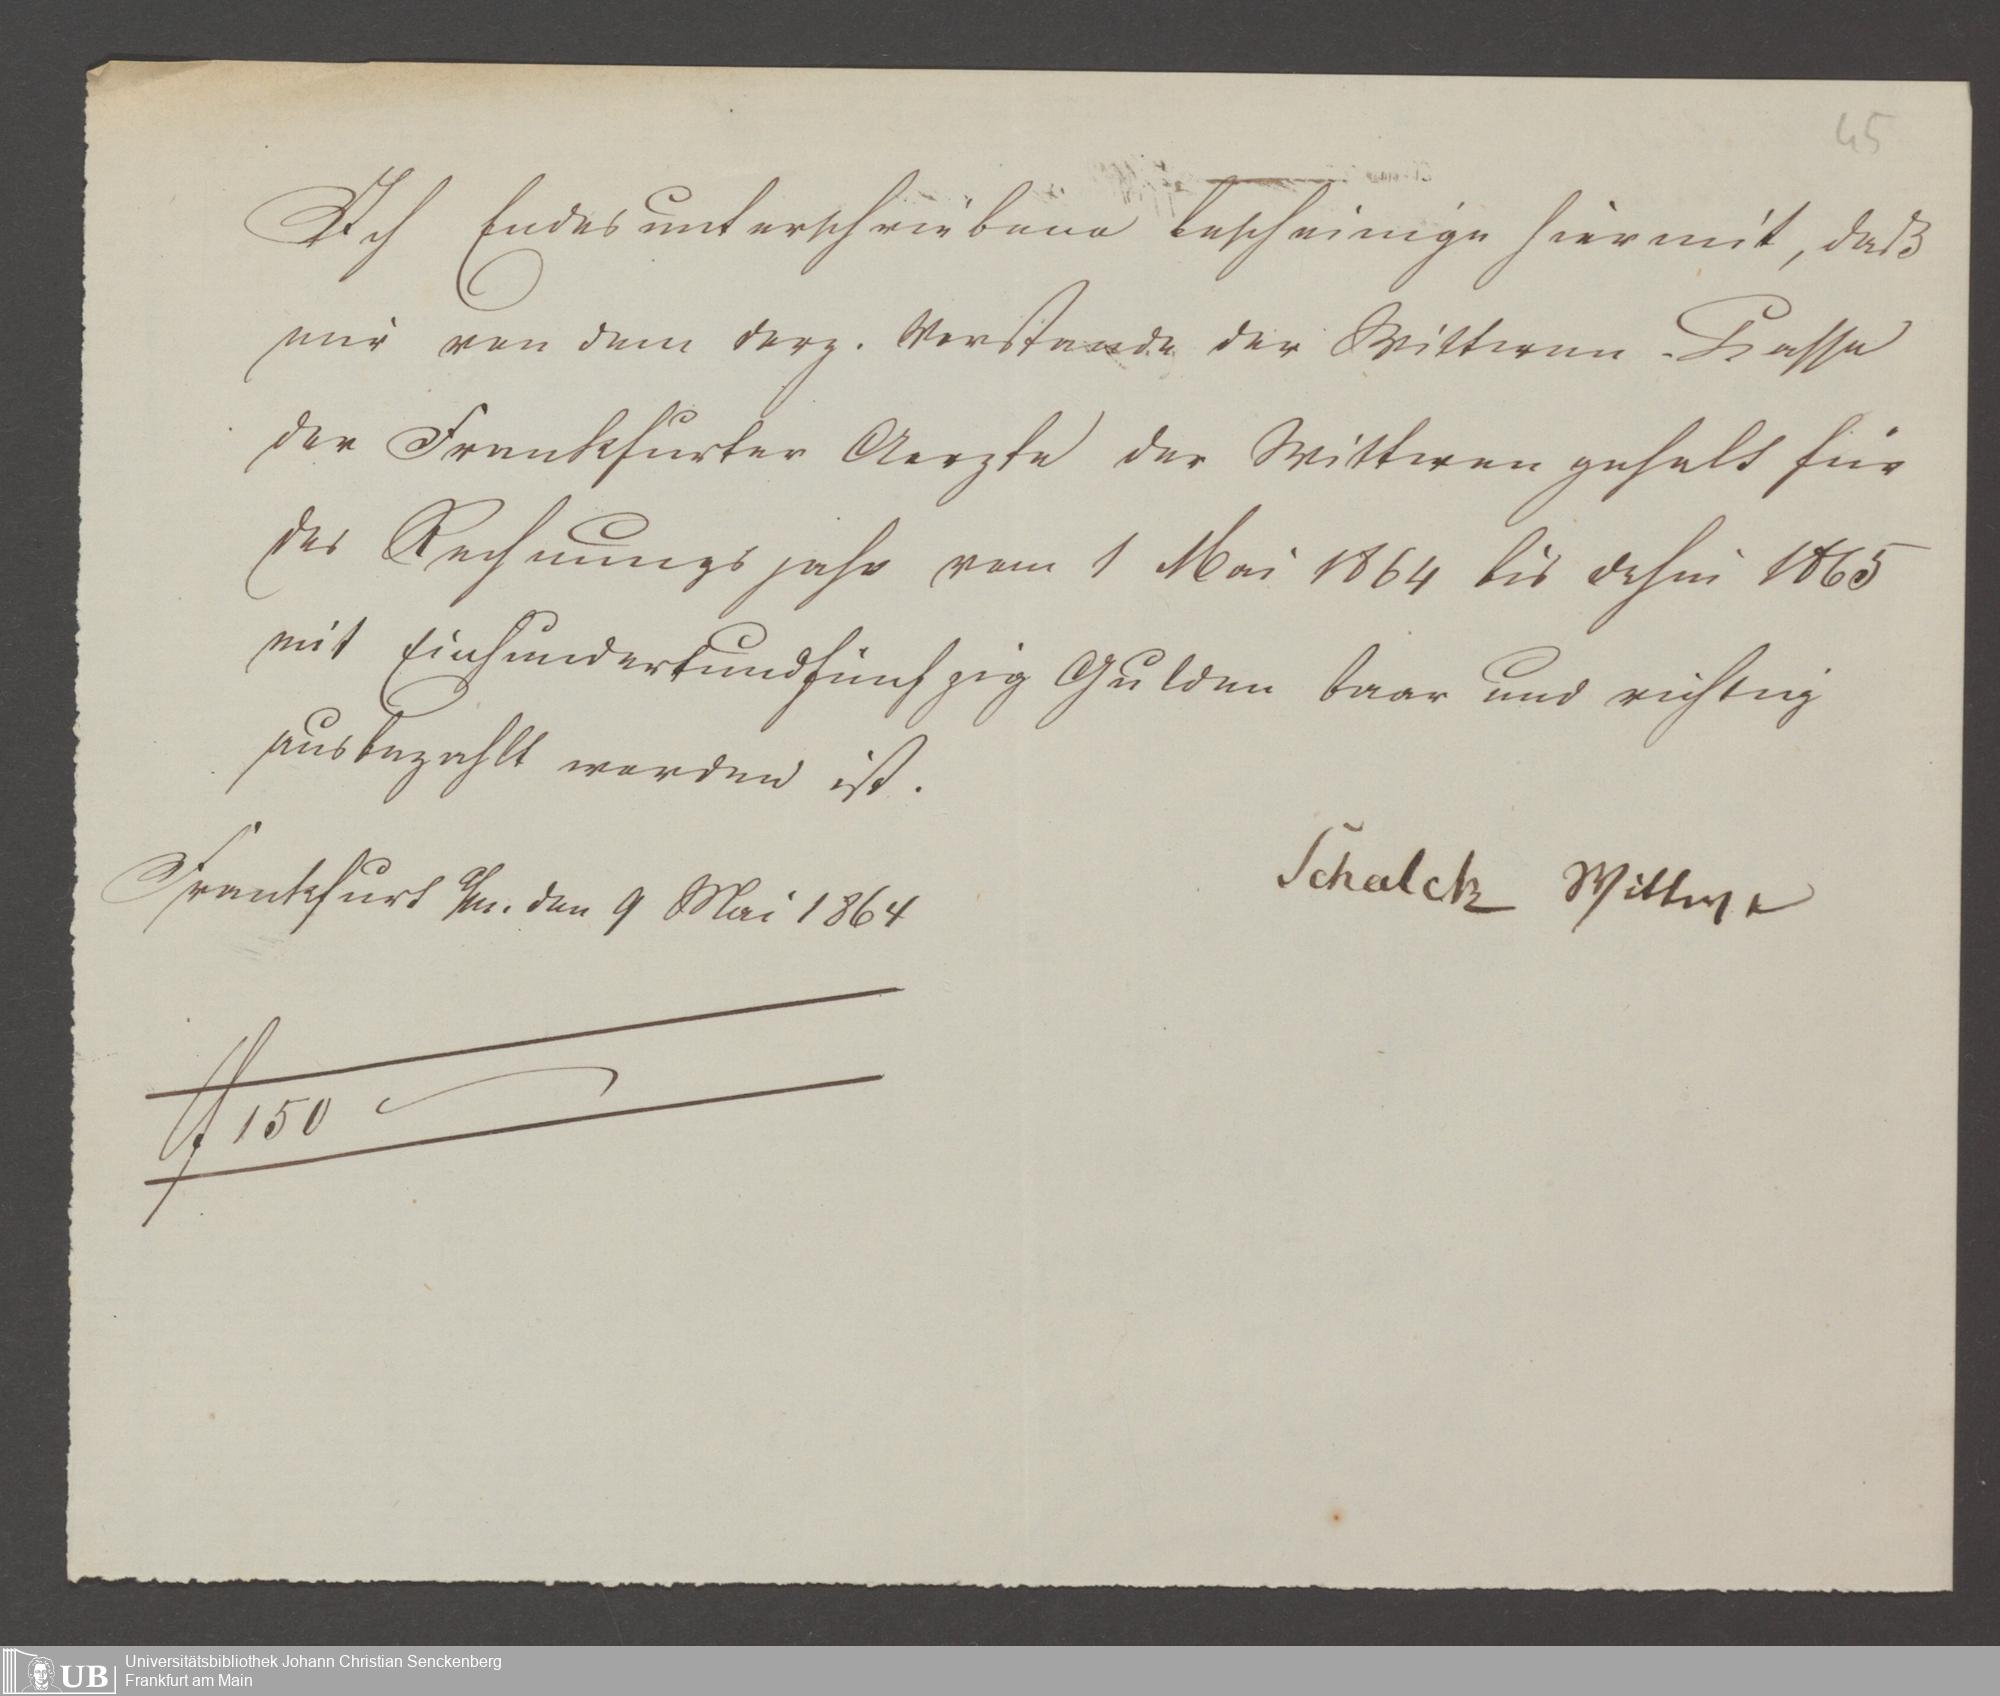 45
Ich Endesunterschriebene bescheinige hiermit, daß
mir von dem derz. Vorstande der Wittwen-Kasse
der Frankfurter Aerzte der Wittwengehalt für
das Rechnungsjahr vom 1 Mai 1864 bis dahin 1865
mit Einhundertundfünfzig Gulden baar und richtig
ausbezahlt worden ist.
Schalck Wittwe
Frankfurt a/m. den 9 Mai 1864
f 150
UB
Universitätsbibliothek Johann Christian Senckenberg
Frankfurt am Main